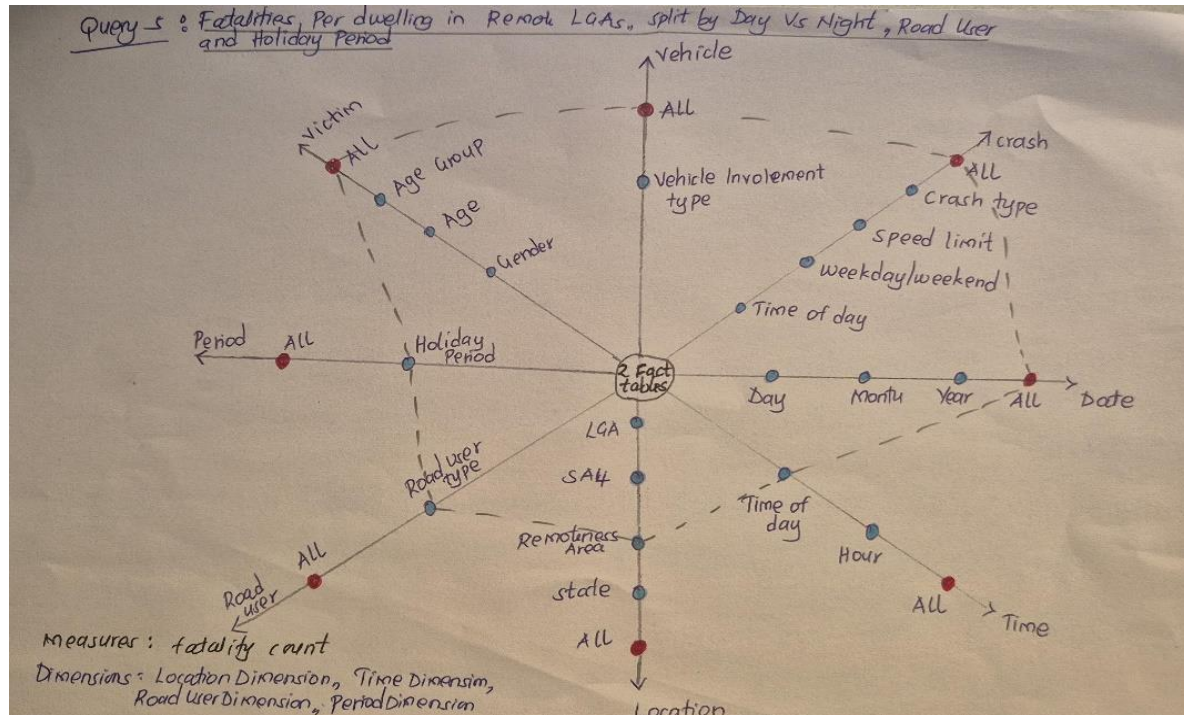 Query 5 : Fatalities, Per dwelling in Remote LGAs. split by Day Vs Night, Road User
and Holiday Period
Vehicle
ALL
Vehicle Involement
type
Victim
ALL
Age Group
Age
Gender
crash
ALL
Crash type
Speed limit
weekday/weekend
Time of day
Period
ALL
Holiday
Period
2 Fact
tables
Day
Month
Year
All
Date
Road user
type
All
Road
user
LGA
SA4
Remoteness
Area
state
ALL
Location
Time of
day
Hour
All
Time
Measures: fatality count
Dimensions: Location Dimension, Time Dimension,
Road User Dimension, Period Dimension